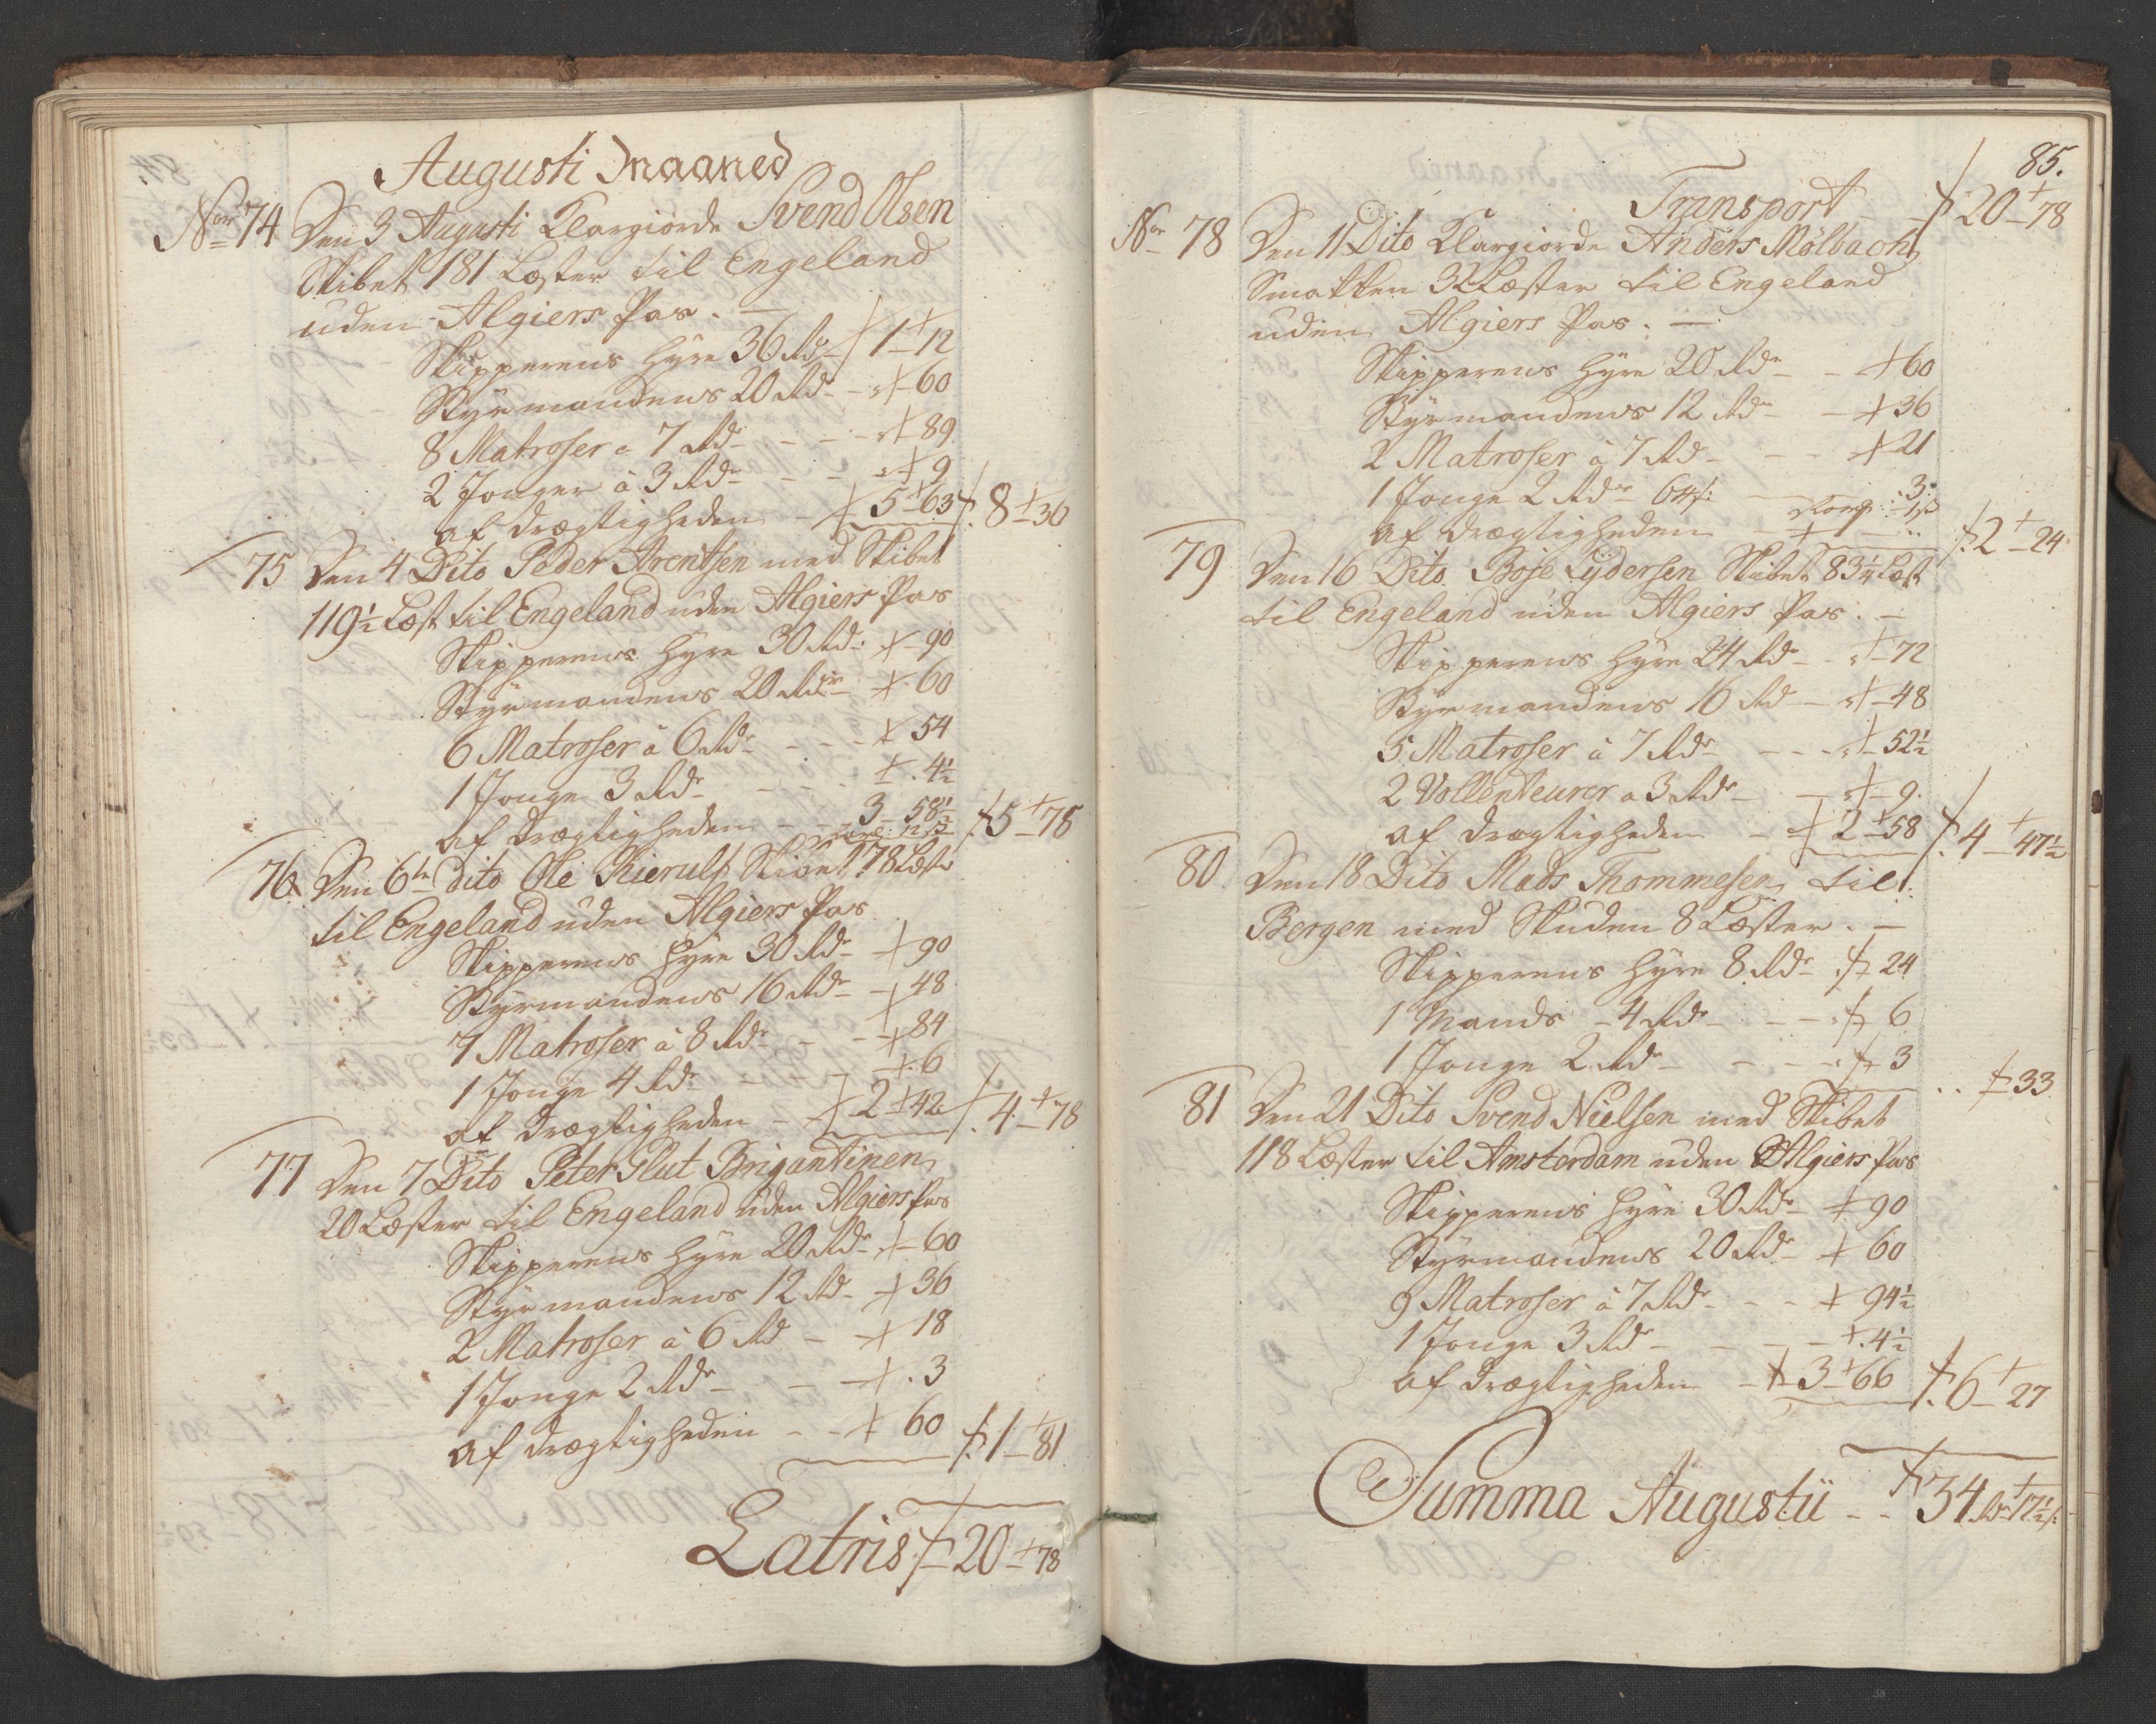 Augusti Maaned
No 74 Den 3 Augusti Klargiorde Svend Olsen
Skibet 181 Læster til Engeland
uden Algiers Pas. —
Skipperens Hyre 36 Rdr 1 - 12
Styrmandens 20 Rdr - 60
8 Matroser a 7 Rdr - - - 89
2 Jonger á 3 Rdr - - 9
af Drægtigheden - 5 - 63 8 - 36
75 Den 4 Dito Peder Arentsen med Skibet
119½ Læst til Engeland uden Algiers Pas
Skipperens Hyre 30 Rdr: - 90
Styrmandens 20 Rdr - 60
6 Matroser á 6 Rdr - - - 54
1 Jonge 3 Rdr - - - 4½
af Drægtigheden - - 3 - 58½ 5 - 78
76 Den 6te dito Ole Kierulf Skibet 78 Læster
til Engeland uden Algiers Pas
Skipperens Hyre 30 Rdr - 90
Styrmandens 16 Rdr - 48
7 Matroser á 8 Rdr - - - 84
1 Jonge 4 Rdr - - - 6
af Drægtigheden - 2 - 42 4 - 78
77 Den 7 Dito Peter Slut Brigantinen
20 Læster til Engeland uden Algiers Pas
Skipperens Hyre 20 Rdr - 60
Styrmandens 12 Rd - 36
2 Matroser á 6 Rd - - 18
1 Jonge 2 Rdr - - - 3
af Drægtigheden - - 60 1 - 81
Latris 20 - 78
85.
Transport - 20 - 78
No 78 Den 11 Dito Klargiorde Anders Mølbach
Smakken 32 Læster til Engeland
uden Algiers Pas. —
Skipperens Hyre 20 Rdr - - 60
Styrmandens 12 Rdr - 36
2 Matroser á 7 Rd - - - 21
1 Jonge 2 Rdr 64 s: 3
af Drægtigheden 1 - " 2 - 24
79 Den 16 Dito Boje Lydersen Skibet 83¼ Læst
til Engeland uden Algiers Pas. —
Skipperens Hyre 24 Rdr - - 72
Styrmandens 16 Rd - - 48
5 Matroser á 7 Rdr - - - 52½
2 Vollenteurer a 3 Rdr - - 9.
af Drægtigheden - 2 - 58 4 - 47½
80 Den 18 Dito Mads Thommesen til
Bergen med Skuden 8 Læster. —
Skipperens Hyre 8 Rdr 24
1 Mands - 4 Rdr - - - 6
1 Jonge 2 Rd - - - 3
33
81 Den 21 Dito Svend Nielsen med Skibet
118 Læster til Amsterdam uden Algiers Pas
Skipperens Hyre 30 Rdr - 90
Styrmandens 20 Rdr - 60
9 Matroser á 7 Rdr - - - 94½
1 Jonge 3 Rd - - - 4½
af Drægtigheden - 3 - 66 6 - 27
Summa Augustii - - 34 Rdr 17½ s: